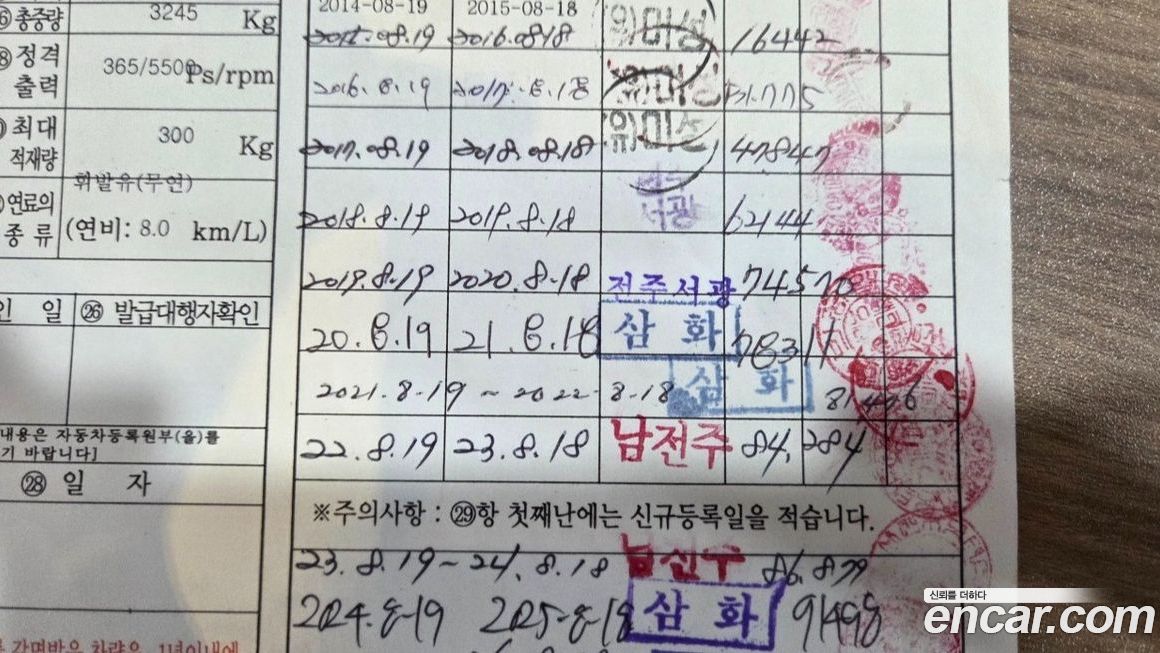 ⑯총중량 3245 Kg
⑱정격 출력 365/5500 Ps/rpm
최대 적재량 300 Kg
연료의 종류 휘발유(무연) (연비: 8.0 km/L)
인 일 ㉖ 발급대행자확인
내용은 자동차등록원부(을)를
기 바랍니다]
㉘ 일 자
간명받은 차량은 1년이내에
2014-08-19 2015-08-18
2015.08.19 2016.08.18 16442
2016.8.19 2017.8.18 31775
2017.08.19 2018.08.18 47847
2018.8.19 2019.8.18 서광 62144
2019.8.19 2020.8.18 전주서광 74570
20.8.19 21.8.18 삼화 78311
2021.8.19 ~ 2022.8.18 삼화 81446
22.8.19 23.8.18 남전주 84,284
※주의사항 : ㉙항 첫째난에는 신규등록일을 적습니다.
23.8.19 ~ 24.8.18 86,879
2024-8-19 2025-8-18 삼화 91498
신뢰를 더하다
encar.com